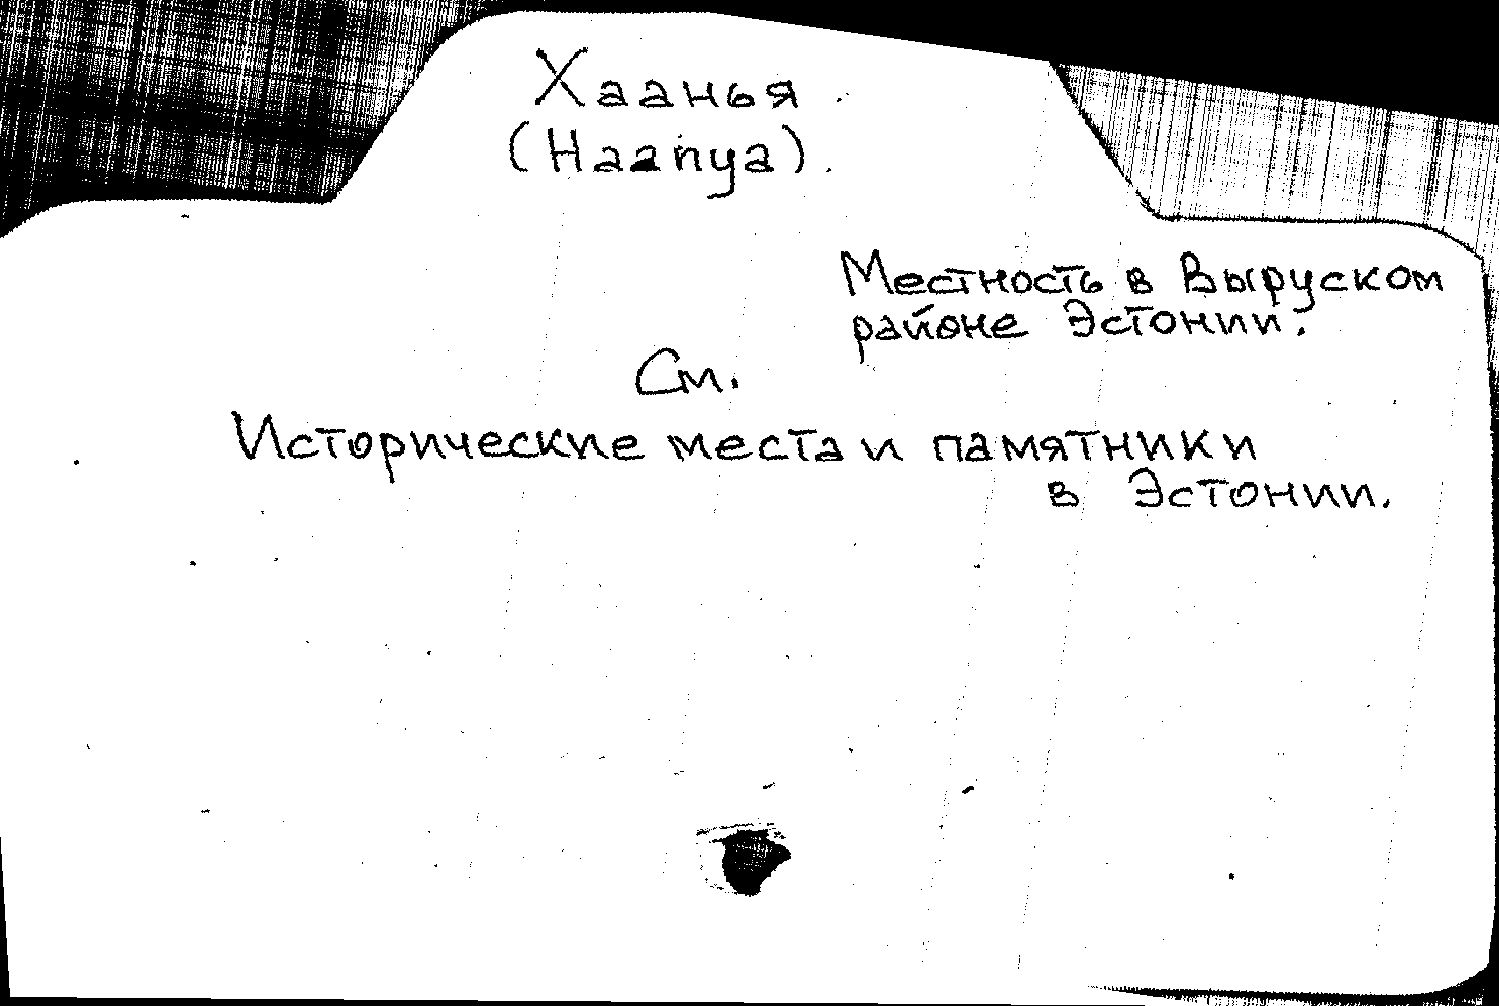 Хаанья
(Haanya).
Местность в Выруском
районе Эстонии.
См.
Исторические места и памятники
в Эстонии.